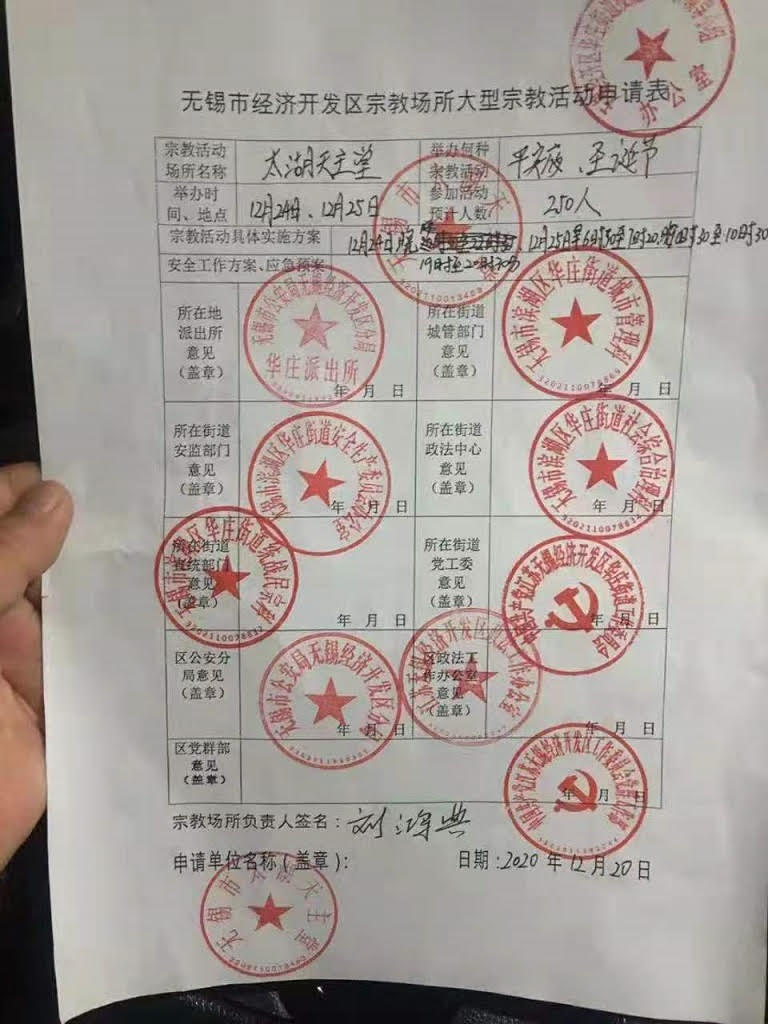 办公室
无锡市经济开发区宗教场所大型宗教活动申请表
宗教活动场所名称 太湖天主堂 举办何种宗教活动 平安夜、圣诞节
举办时间、地点 12月24日、12月25日 参加活动预计人数 250人
宗教活动具体实施方案 12月24日晚 12月25日早6时30至7时20
安全工作方案、应急预案 19时至20时30分
无锡市 天
3202110013469
所在地
派出所
意见
(盖章)
无锡市公安局无锡经济开发区分局
华庄派出所
年 月 日
所在街道
城管部门
意见
(盖章)
无锡市滨湖区华庄街道城市管理科
年 月 日
所在街道
安监部门
意见
(盖章)
无锡市滨湖区华庄街道安全生产委员会办公室
年 月 日
所在街道
政法中心
意见
(盖章)
无锡市滨湖区华庄街道社会综合治理科
年 月 日
所在街道
宣统部门
意见
(盖章)
无锡市滨湖区华庄街道统战民宗科
年 月 日
所在街道
党工委
意见
(盖章)
年 月 日
区公安分
局意见
(盖章)
无锡市公安局无锡经济开发区分局
年 月 日
区政法工
作办公室
意见
(盖章)
年 月 日
区党群部
意见
(盖章)
年 月 日
宗教场所负责人签名:
申请单位名称(盖章): 日期:2020年12月20日
无锡市太湖天主堂